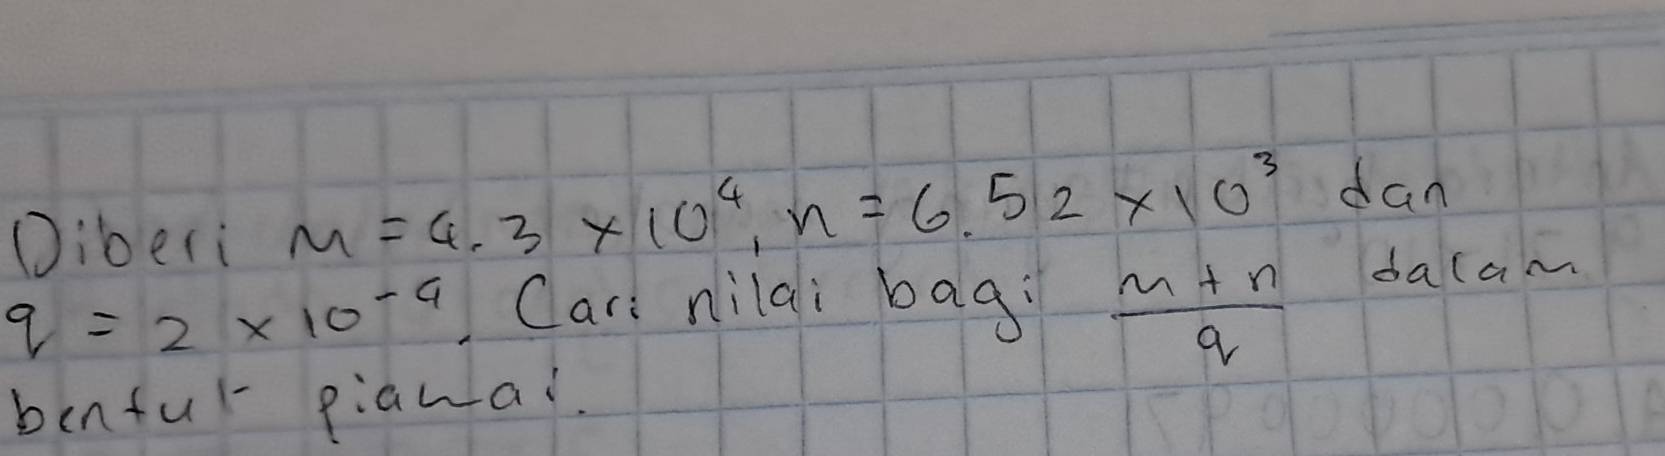 Diberi m = 4.3 × 10⁴, n = 6.52 × 10³ dan
q = 2 × 10⁻⁴. Cari nilai bagi \frac{m + n}{q} dalam
bentuk piawai.